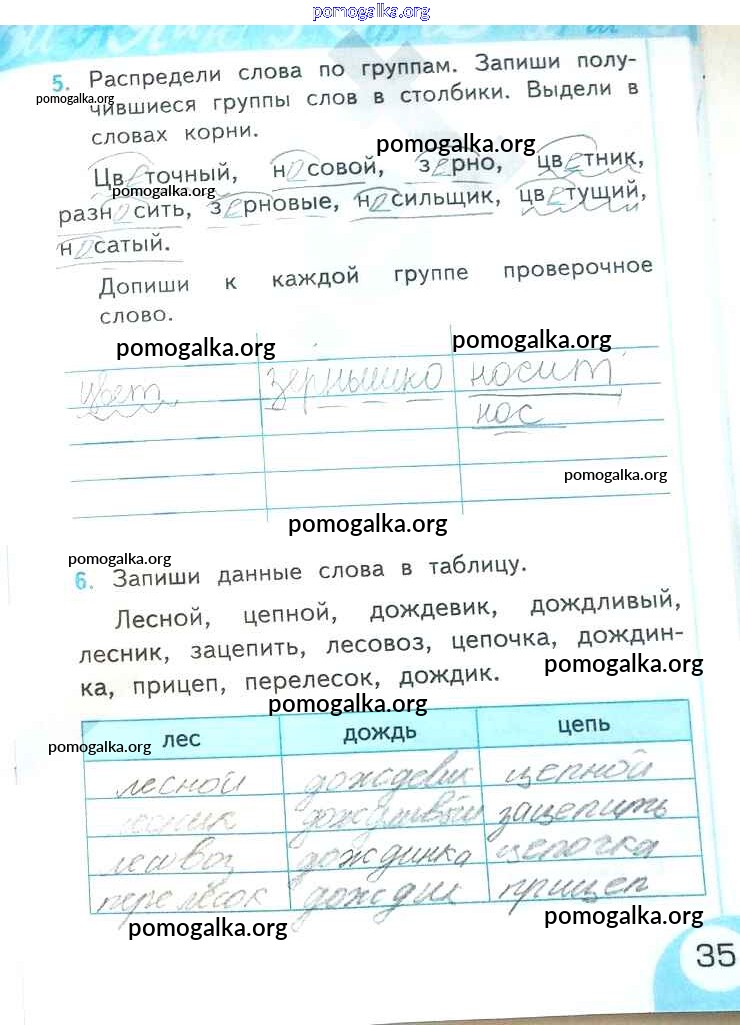 pomogalka.org
5. Распредели слова по группам. Запиши полу-
pomogalka.org
чившиеся группы слов в столбики. Выдели в
словах корни.
pomogalka.org
Цветочный, носовой, зерно, цветник,
pomogalka.org
разносить, зерновые, носильщик, цветущий,
носатый.
Допиши к каждой группе проверочное
слово.
pomogalka.org pomogalka.org
цвет зёрнышко носит
нос
pomogalka.org
pomogalka.org
pomogalka.org
6. Запиши данные слова в таблицу.
Лесной, цепной, дождевик, дождливый,
лесник, зацепить, лесовоз, цепочка, дождин-
ка, прицеп, перелесок, дождик.
pomogalka.org
pomogalka.org
pomogalka.org
лес дождь цепь
лесной дождевик цепной
лесник дождливый зацепить
лесовоз дождинка цепочка
перелесок дождик прицеп
pomogalka.org pomogalka.org
35